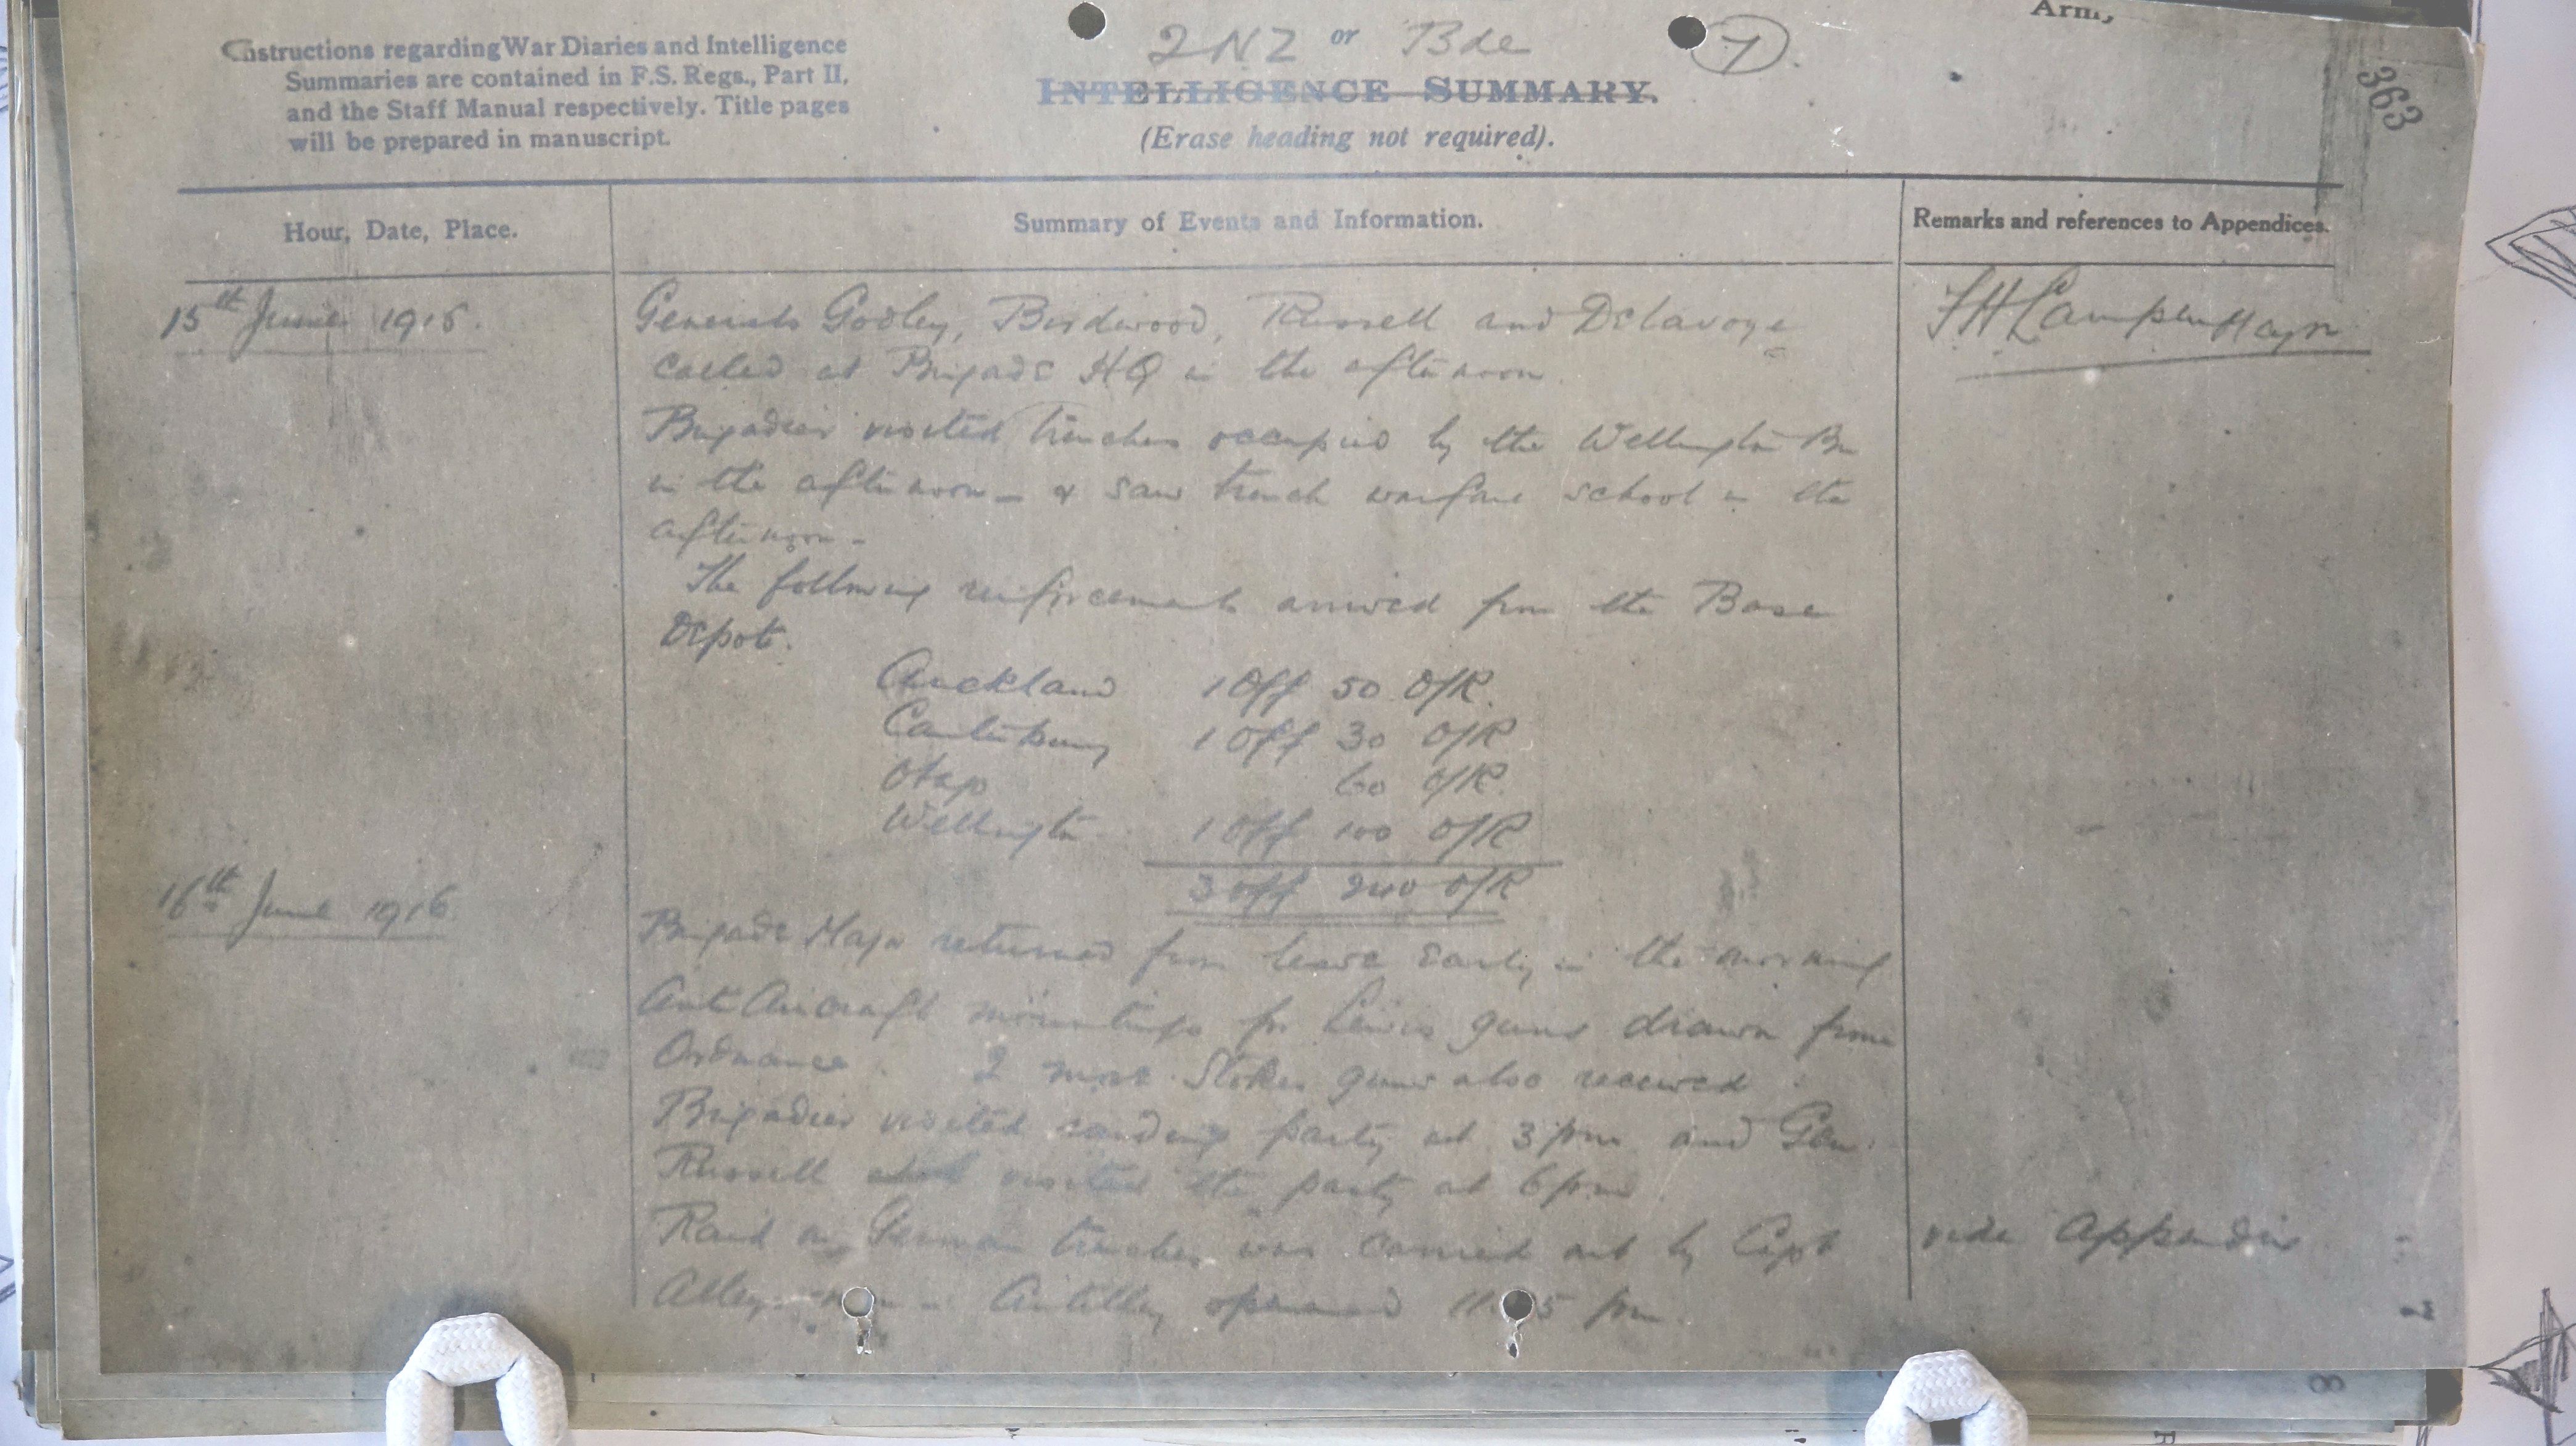 Army
Instructions regarding War Diaries and Intelligence
Summaries are contained in F.S. Regs., Part II,
and the Staff Manual respectively. Title pages
will be prepared in manuscript.
2 NZ or Bde
7
INTELLIGENCE SUMMARY.
(Erase heading not required).
363
Hour, Date, Place.
Summary of Events and Information.
Remarks and references to Appendices.
15th June 1916.
Generals Godley, Birdwood, Russell and Delavoye
called at Brigade HQ in the afternoon.
Brigadier visited trenches occupied by the Wellington Bn
in the afternoon – & saw trench warfare school in the
afternoon –
The following reinforcements arrived from the Base
Depot.
Auckland 1 Off 50 O/R.
Canterbury 1 Off 30 O/R
Otago 60 O/R.
Wellington 1 Off 100 O/R
3 Off 240 O/R
16th June 1916
Brigade Major returned from leave early in the morning
Anti Aircraft mountings for Lewis guns drawn from
Ordnance. 2 more Stokes guns also received.
Brigadier visited raiding party at 3 pm and Gen.
Russell visited the party at 6 pm.
Raid on German trenches was carried out by Capt
vide Appendix
Artillery opened pm.
7
8